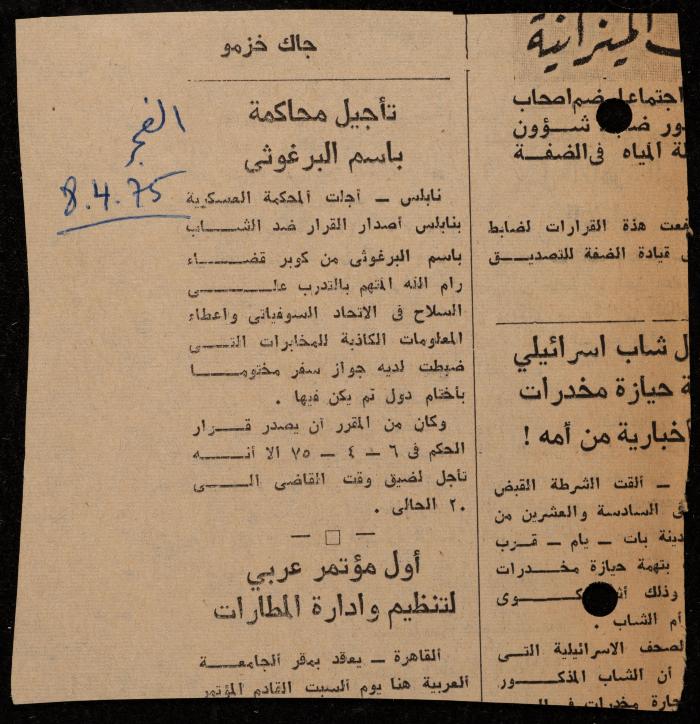 جاك خزمو
الفجر
8.4.75
تأجيل محاكمة
باسم البرغوثي
نابلس — أجلت المحكمة العسكرية
بنابلس أصدار القرار ضد الشاب
باسم البرغوثى من كوبر قضاء
رام الله المتهم بالتدرب على
السلاح فى الاتحاد السوفياتى واعطاء
المعلومات الكاذبة للمخابرات التى
ضبطت لديه جواز سفر مختوما
بأختام دول تم يكن فيها .
وكان من المقرر أن يصدر قرار
الحكم فى ٦ — ٤ — ٧٥ الا أنه
تأجل لضيق وقت القاضى الى
٢٠ الحالى .
أول مؤتمر عربي
لتنظيم وادارة المطارات
القاهرة — يعقد بمقر الجامعة
العربية هنا يوم السبت القادم المؤتمر
الميزانية
اجتماعا ضم اصحاب
شؤون
المياه فى الضفة
هذه القرارات لضابط
قيادة الضفة للتصديق
شاب اسرائيلي
حيازة مخدرات
اخبارية من أمه !
— ألقت الشرطة القبض
السادسة والعشرين من
بات — يام — قرب
بتهمة حيازة مخدرات
وذلك
أم الشاب .
الصحف الاسرائيلية التى
أن الشاب المذكور
مخدرات فى